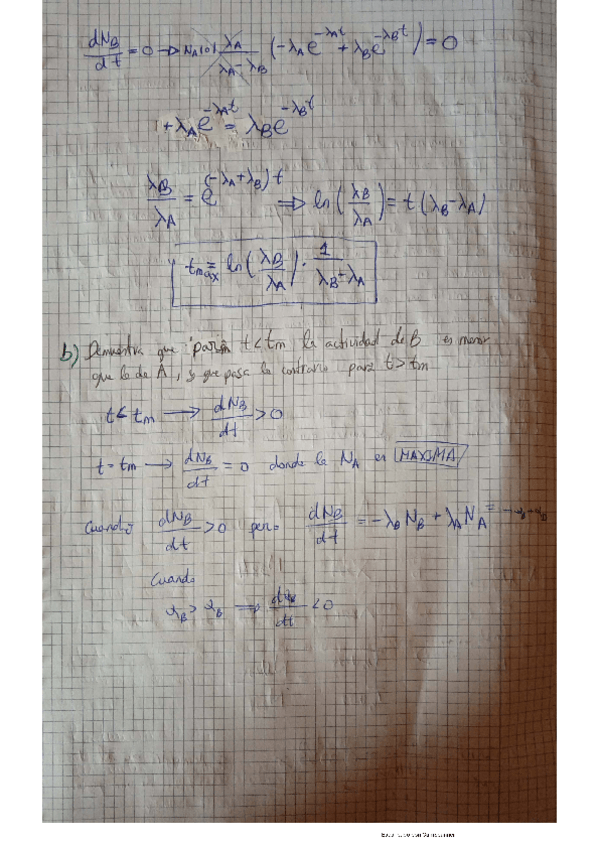 dN_B/dt = 0 → N_A(0) λ_A/(λ_A - λ_B) (-λ_A e^{-λ_A t} + λ_B e^{-λ_B t}) = 0
+λ_A e^{-λ_A t} = λ_B e^{-λ_B t}
λ_B/λ_A = e^{(-λ_A+λ_B)t} ⇒ ln(λ_B/λ_A) = t(λ_B-λ_A)
t_max = ln(λ_B/λ_A) · 1/(λ_B-λ_A)
b) Demuestra que para t<t_m la actividad de B es menor
que la de A, y que pasa lo contrario para t>t_m
t<t_m → dN_B/dt > 0
t=t_m → dN_B/dt = 0 donde la N_A es MAXIMA
Cuando dN_B/dt > 0 pero dN_B/dt = -λ_B N_B + λ_A N_A =
Cuando
α_B > α_B ⇒ dN_B/dt < 0